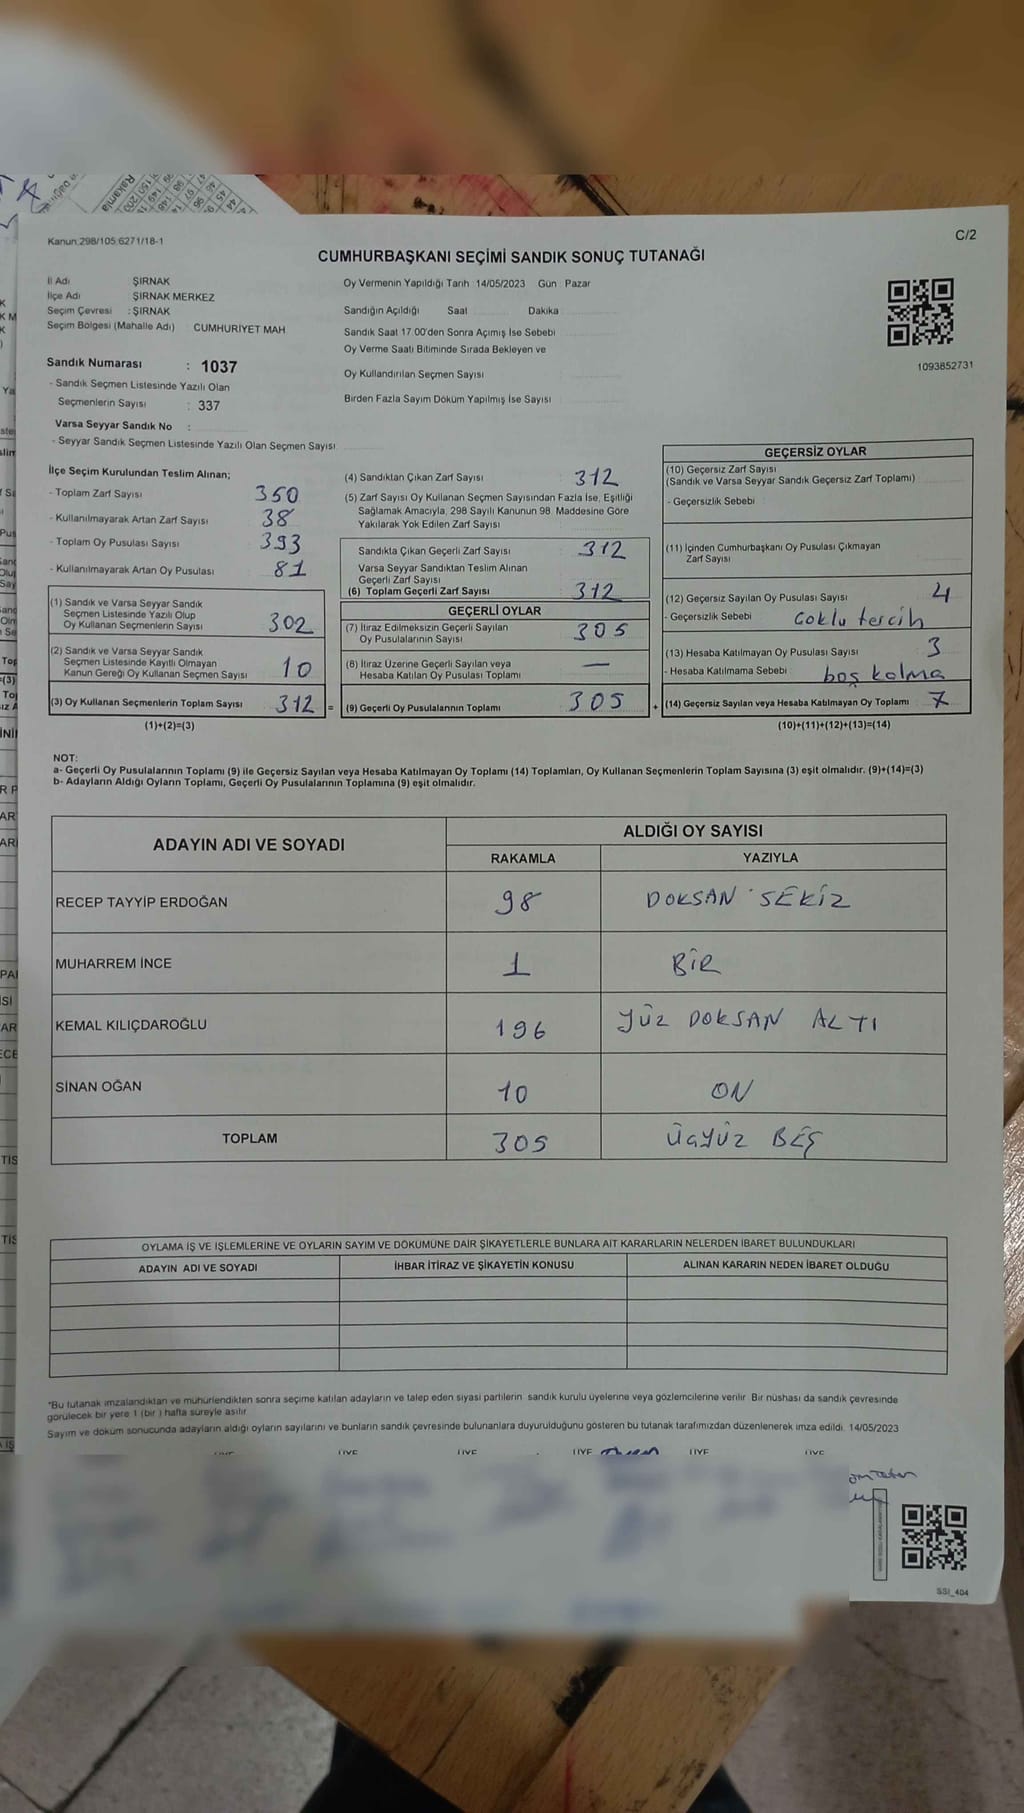 Kanun:298/105,6271/18-1
C/2
CUMHURBAŞKANI SEÇİMİ SANDIK SONUÇ TUTANAĞI
İl Adı ŞIRNAK
İlçe Adı ŞIRNAK MERKEZ
Seçim Çevresi : ŞIRNAK
Seçim Bölgesi (Mahalle Adı) CUMHURİYET MAH
Sandık Numarası : 1037
- Sandık Seçmen Listesinde Yazılı Olan
Seçmenlerin Sayısı : 337
Varsa Seyyar Sandık No :
- Seyyar Sandık Seçmen Listesinde Yazılı Olan Seçmen Sayısı
Oy Vermenin Yapıldığı Tarih 14/05/2023 Gün Pazar
Sandığın Açıldığı Saat Dakika
Sandık Saat 17.00'den Sonra Açımış İse Sebebi
Oy Verme Saati Bitiminde Sırada Bekleyen ve
Oy Kullandırılan Seçmen Sayısı
Birden Fazla Sayım Döküm Yapılmış İse Sayısı
1093852731
İlçe Seçim Kurulundan Teslim Alınan;
- Toplam Zarf Sayısı 350
- Kullanılmayarak Artan Zarf Sayısı 38
- Toplam Oy Pusulası Sayısı 393
- Kullanılmayarak Artan Oy Pusulası 81
(1) Sandık ve Varsa Seyyar Sandık
Seçmen Listesinde Yazılı Olup
Oy Kullanan Seçmenlerin Sayısı 302
(2) Sandık ve Varsa Seyyar Sandık
Seçmen Listesinde Kayıtlı Olmayan
Kanun Gereği Oy Kullanan Seçmen Sayısı 10
(3) Oy Kullanan Seçmenlerin Toplam Sayısı 312 =
(1)+(2)=(3)
(4) Sandıktan Çıkan Zarf Sayısı : 312
(5) Zarf Sayısı Oy Kullanan Seçmen Sayısından Fazla İse, Eşitliği
Sağlamak Amacıyla, 298 Sayılı Kanunun 98. Maddesine Göre
Yakılarak Yok Edilen Zarf Sayısı
Sandıkta Çıkan Geçerli Zarf Sayısı : 312
Varsa Seyyar Sandıktan Teslim Alınan
Geçerli Zarf Sayısı
(6) Toplam Geçerli Zarf Sayısı : 312
GEÇERLİ OYLAR
(7) İtiraz Edilmeksizin Geçerli Sayılan
Oy Pusulalarının Sayısı : 305
(8) İtiraz Üzerine Geçerli Sayılan veya
Hesaba Katılan Oy Pusulası Toplamı —
(9) Geçerli Oy Pusulalarının Toplamı : 305 +
GEÇERSİZ OYLAR
(10) Geçersiz Zarf Sayısı
(Sandık ve Varsa Seyyar Sandık Geçersiz Zarf Toplamı)
- Geçersizlik Sebebi
(11) İçinden Cumhurbaşkanı Oy Pusulası Çıkmayan
Zarf Sayısı
(12) Geçersiz Sayılan Oy Pusulası Sayısı 4
- Geçersizlik Sebebi Çoklu tercih
(13) Hesaba Katılmayan Oy Pusulası Sayısı 3
- Hesaba Katılmama Sebebi boş kalma
(14) Geçersiz Sayılan veya Hesaba Katılmayan Oy Toplamı 7
(10)+(11)+(12)+(13)=(14)
NOT:
a- Geçerli Oy Pusulalarının Toplamı (9) ile Geçersiz Sayılan veya Hesaba Katılmayan Oy Toplamı (14) Toplamları, Oy Kullanan Seçmenlerin Toplam Sayısına (3) eşit olmalıdır. (9)+(14)=(3)
b- Adayların Aldığı Oyların Toplamı, Geçerli Oy Pusulalarının Toplamına (9) eşit olmalıdır.
ADAYIN ADI VE SOYADI ALDIĞI OY SAYISI
RAKAMLA YAZIYLA
RECEP TAYYİP ERDOĞAN 98 DOKSAN SEKİZ
MUHARREM İNCE 1 BİR
KEMAL KILIÇDAROĞLU 196 YÜZ DOKSAN ALTI
SİNAN OĞAN 10 ON
TOPLAM 305 ÜÇYÜZ BEŞ
OYLAMA İŞ VE İŞLEMLERİNE VE OYLARIN SAYIM VE DÖKÜMÜNE DAİR ŞİKAYETLERLE BUNLARA AİT KARARLARIN NELERDEN İBARET BULUNDUKLARI
ADAYIN ADI VE SOYADI İHBAR İTİRAZ VE ŞİKAYETİN KONUSU ALINAN KARARIN NEDEN İBARET OLDUĞU
*Bu tutanak imzalandıktan ve mühürlendikten sonra seçime katılan adayların ve talep eden siyasi partilerin sandık kurulu üyelerine veya gözlemcilerine verilir. Bir nüshası da sandık çevresinde
görülecek bir yere 1 (bir) hafta süreyle asılır.
Sayım ve döküm sonucunda adayların aldığı oyların sayılarını ve bunların sandık çevresinde bulunanlara duyurulduğunu gösteren bu tutanak tarafımızdan düzenlenerek imza edildi. 14/05/2023
SSI_404